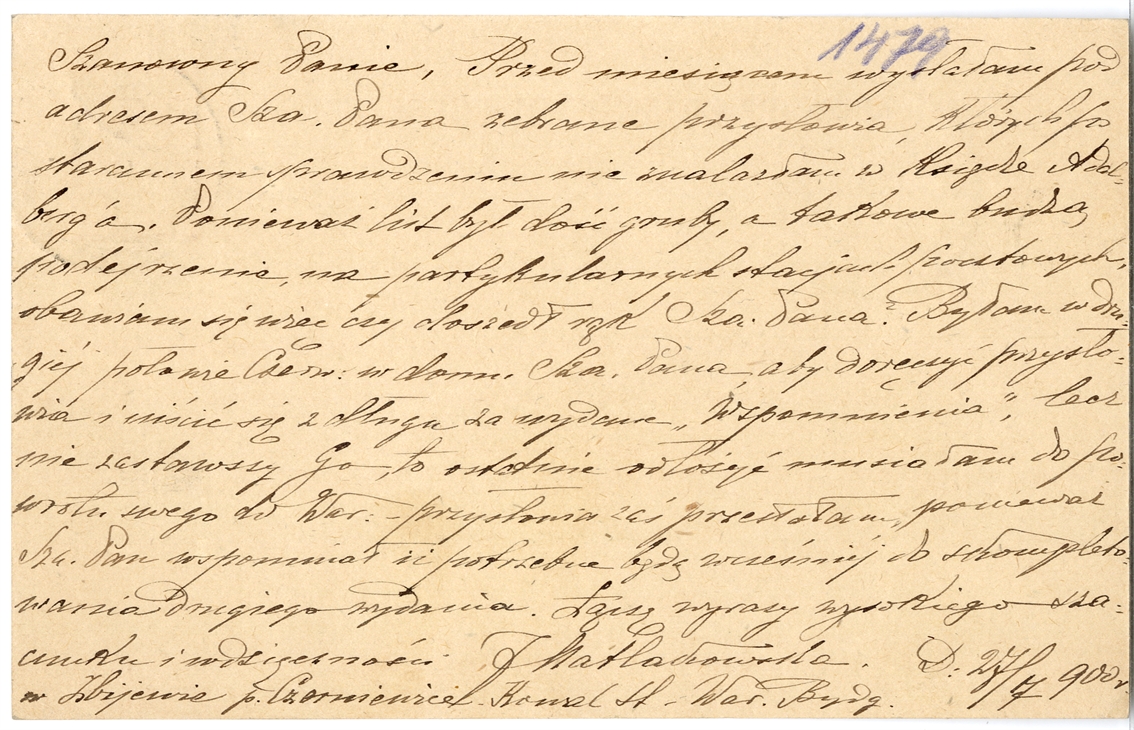 1479
Szanowny Panie, Przed miesiącem wysłałam pod
adresem Sza. Pana zebrane przysłowia, których po
starannem sprawdzeniu nie znalazłam w Księdze Adal-
berga. Ponieważ list był dość gruby, a takowe budzą
podejrzenie, na partykularnych stacjach pocztowych,
obawiam się więc czy doszedł rąk Sza. Pana? Byłam w dru-
giej połowie Czerw: w domu Sza. Pana, aby doręczyć przysło-
wia i uiścić się z długu za wydane „Wspomnienia", lecz
nie zastawszy Go, to ostatnie odłożyć musiałam do po-
wrotu swego do War. - przysłowia zaś przesłałam, ponieważ
Sza. Pan wspominał iż potrzebne będą wcześniej do skompleto-
wania drugiego wydania. Łączę wyrazy wysokiego sza-
cunku i wdzięczności Matlakowska. D. 27/7 900 r.
w Zbijewie p. Czerniewice Kowal St. War. Bydg.